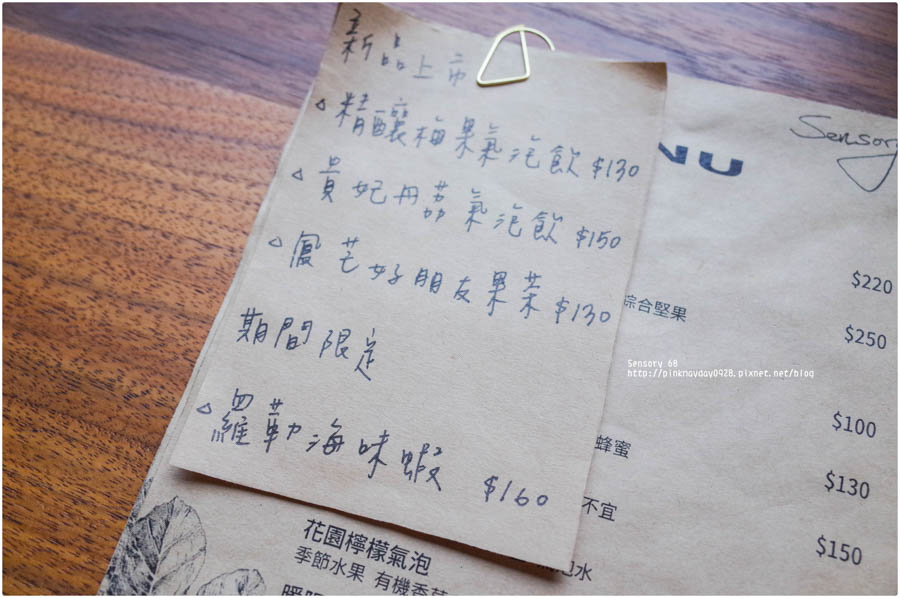 新品上市
△ 精釀梅果氣泡飲 $130
△ 貴妃丹荔氣泡飲 $150
△ 鳳芒好朋友果茶 $130
期間限定
△ 羅勒海味蝦 $160
NU
Sensory
$220
綜合堅果
$250
Sensory 68
http://pinkmayday0928.pixnet.net/blog
$100
蜂蜜
$130
不宜
$150
花園檸檬氣泡
季節水果 有機香